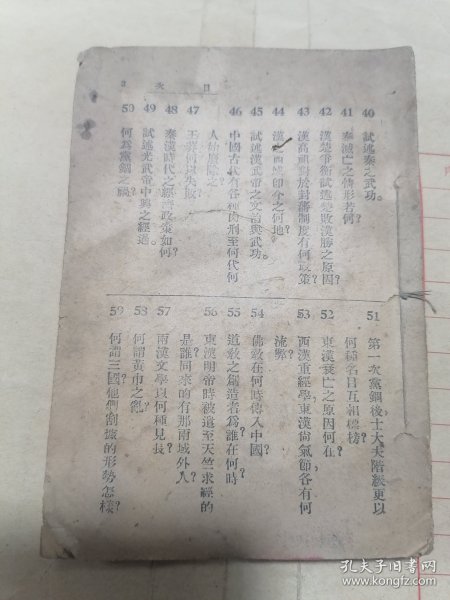 目次 3
40 試述秦之武功。
41 秦滅亡之情形若何？
42 漢楚爭衡試述楚敗漢勝之原因？
43 漢高祖對於封建制度有何政策？
44 漢之西域卽今之何地？
45 試述漢武帝之文治與武功。
46 中國古代有各種肉刑至何代何
人始廢除之？
47 王莽何以失敗？
48 秦漢時代之經濟政策如何？
49 試述光武帝中興之經過。
50 何為黨錮之禍？
51 第一次黨錮後，士大夫階級更以
何種名目互相標榜？
52 東漢衰亡之原因何在？
53 西漢重經學，東漢尙氣節，各有何
流弊？
54 佛敎在何時傳入中國？
55 道敎之創造者為誰？在何時？
56 東漢明帝時被遣至天竺求經的
是誰？同來的有那兩域外人？
57 兩漢文學以何種見長？
58 何謂黃巾之亂？
59 何謂三國？他們割據的形勢怎樣？
孔夫子旧书网
www.kongfz.com